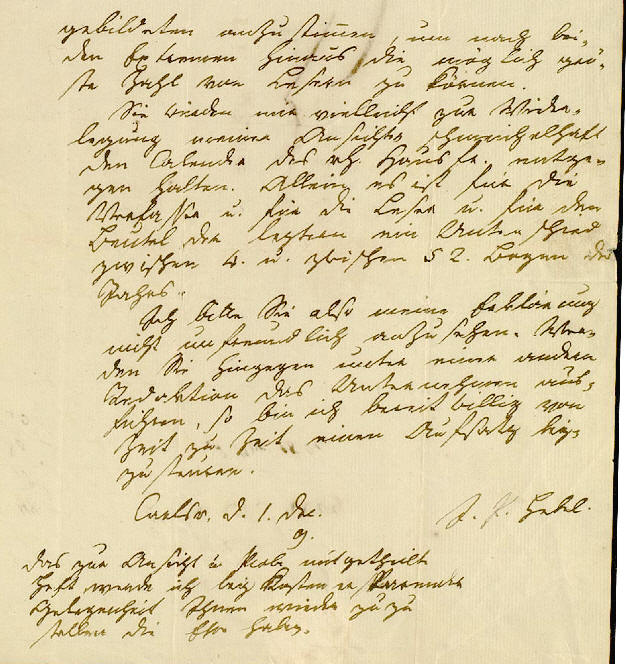 gebildeten anzustimmen, um nach bei-
den Extremen hinaus die möglich grö-
ste Zahl von Lesern zu können.
Sie werden mir vielleicht zur Wider-
legung meiner Ansicht schmeichelhaft
den Calender des rh. Hausfr. entge-
gen halten. Allein es ist für die
Verfasser u. für die Leser u. für den
Beutel der leztern ein Unterschied
zwischen 4. u. zwischen 52. Bogen des
Jahrs.
Ich bitte Sie also meine Erklärung
nicht unfreundlich anzusehen. Wer-
den Sie hingegen unter einer andern
Redaktion das Unternehmen aus-
führen, so bin ich bereit willig von
Zeit zu Zeit einen Aufsatz bey-
zusteuern.
Carlsr. d. 1. Dec. J. P. Hebel.
9.
Das zur Ansicht u. Probe mitgetheilte
Heft werde ich bey
Gelegenheit Ihnen wieder zuzu
stellen die Ehre haben.